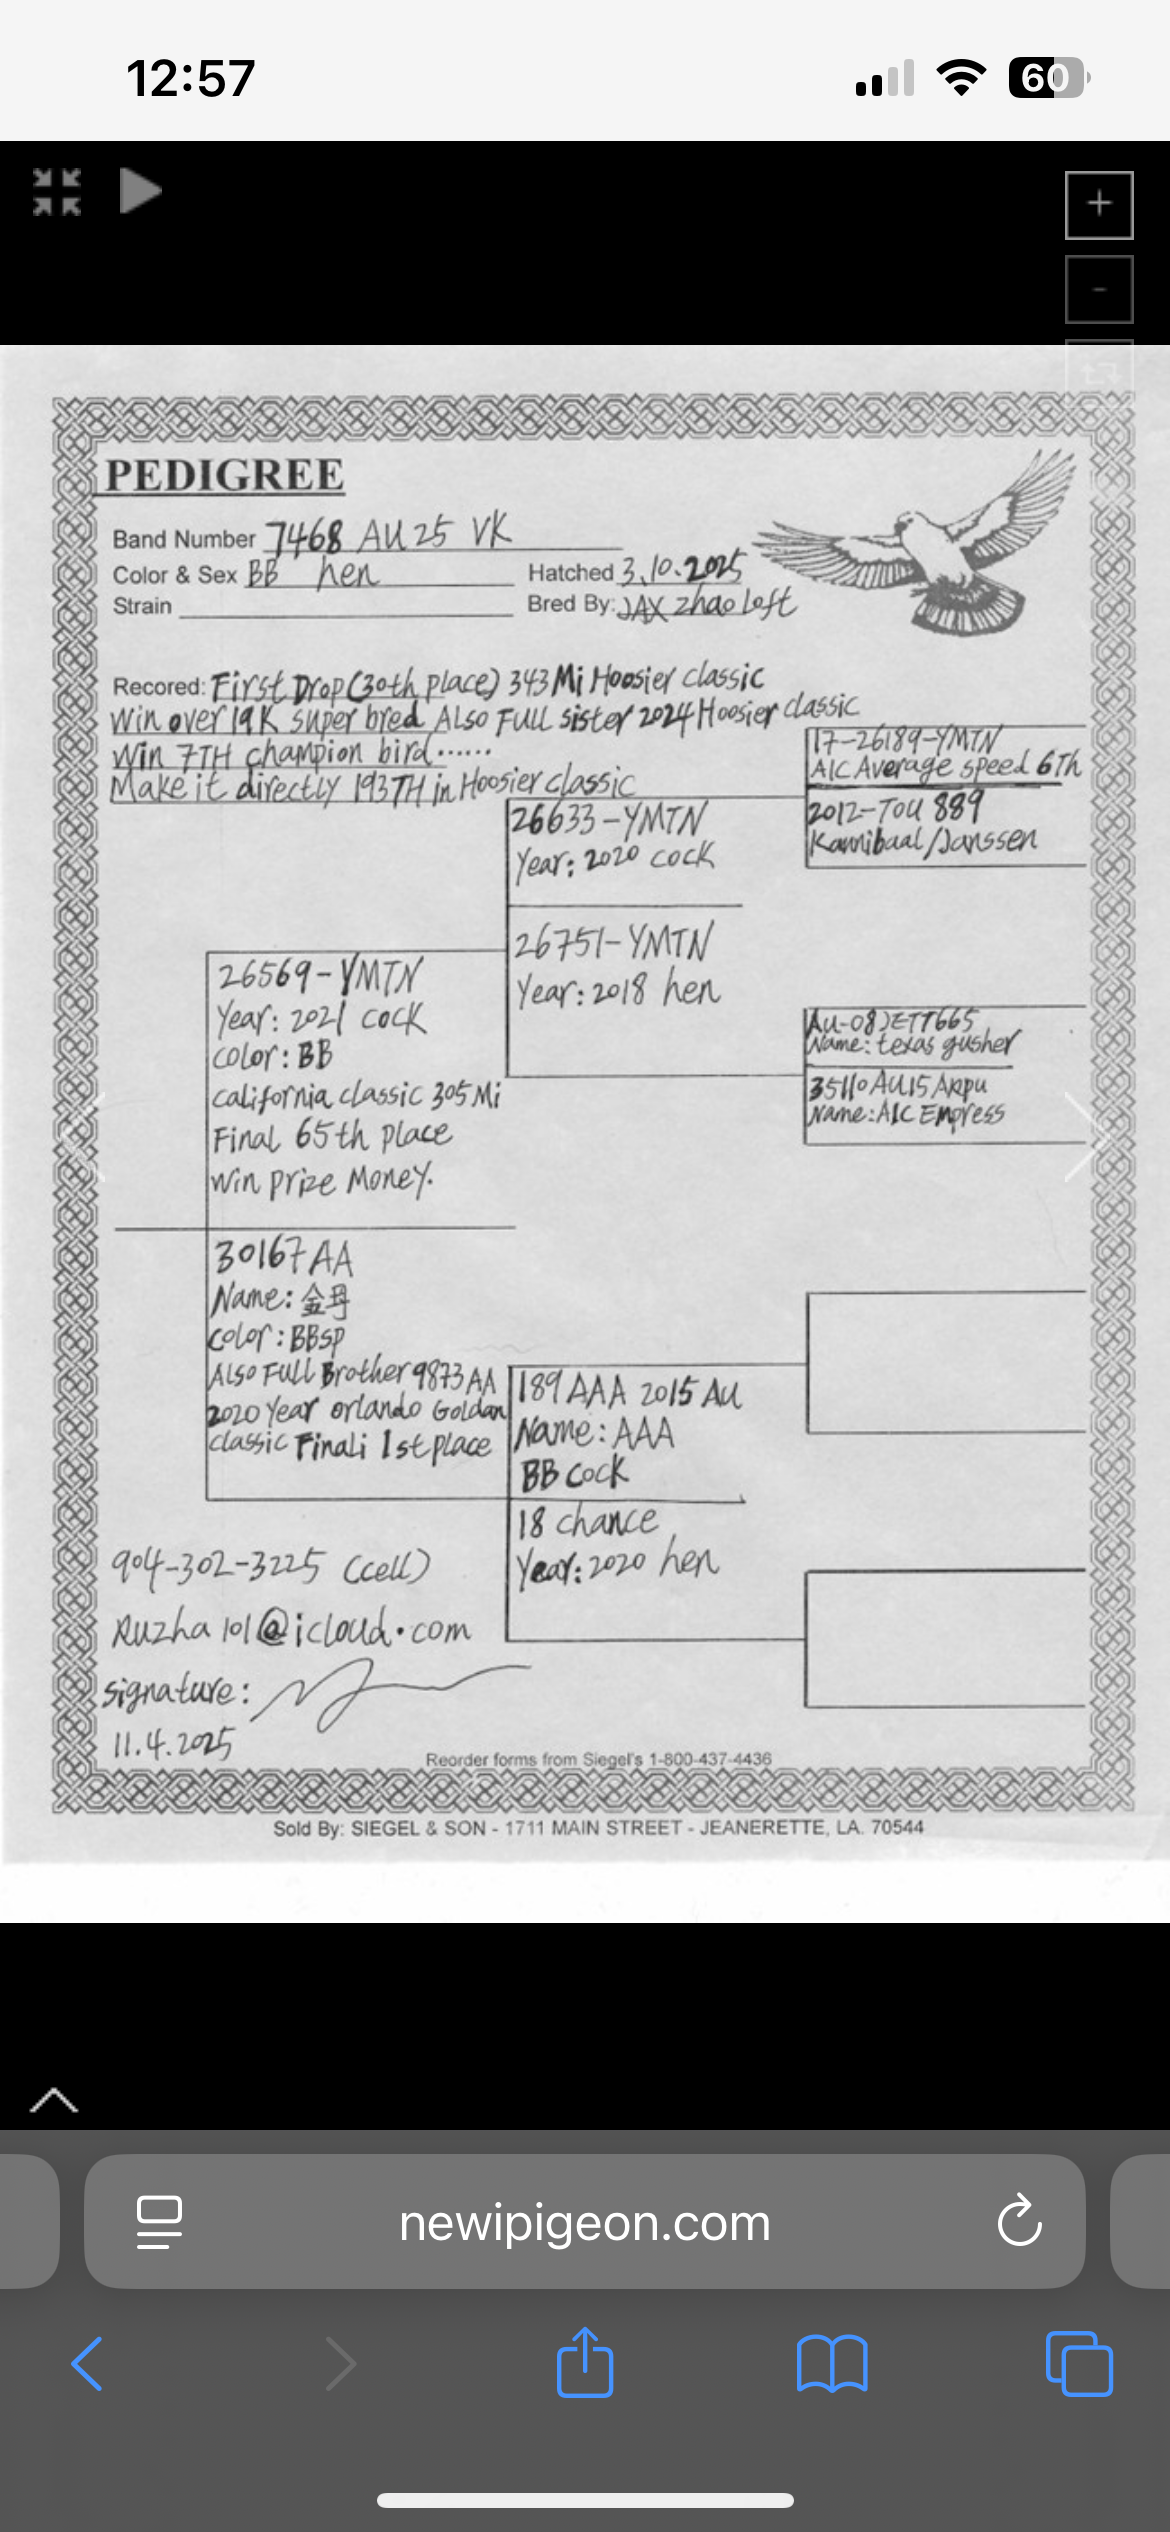 12:57
60
+
-
PEDIGREE
Band Number 7468 AU 25 VK
Color & Sex BB hen
Hatched 3.10.2025
Strain
Bred By: JAX zhao Loft
Recored: First Drop (30th place) 343 Mi Hoosier classic
Win over 19K super bred Also Full sister 2024 Hoosier classic
Win 7TH champion bird......
Make it directly 193TH in Hoosier classic
17-26189-YMTN
AIC Average speed 6Th
2012-TOU 889
Kannibaal/Janssen
26633-YMTN
Year: 2020 cock
26751-YMTN
Year: 2018 hen
AU-08 JETT665
Name: texas gusher
35110 AU15 Arpu
Name: AIC Empress
26569-YMTN
Year: 2021 cock
color: BB
california classic 305 Mi
Final 65th place
Win prize Money.
30167 AA
Name: 金母
color: BBSP
Also Full Brother 9873 AA
2020 Year orlando Goldan
classic Finali 1st place
189 AAA 2015 AU
Name: AAA
BB cock
18 chance
Year: 2020 hen
904-302-3225 (cell)
Ruzha101@icloud.com
signature:
11.4.2025
Reorder forms from Siegel's 1-800-437-4436
Sold By: SIEGEL & SON - 1711 MAIN STREET - JEANERETTE, LA. 70544
newipigeon.com